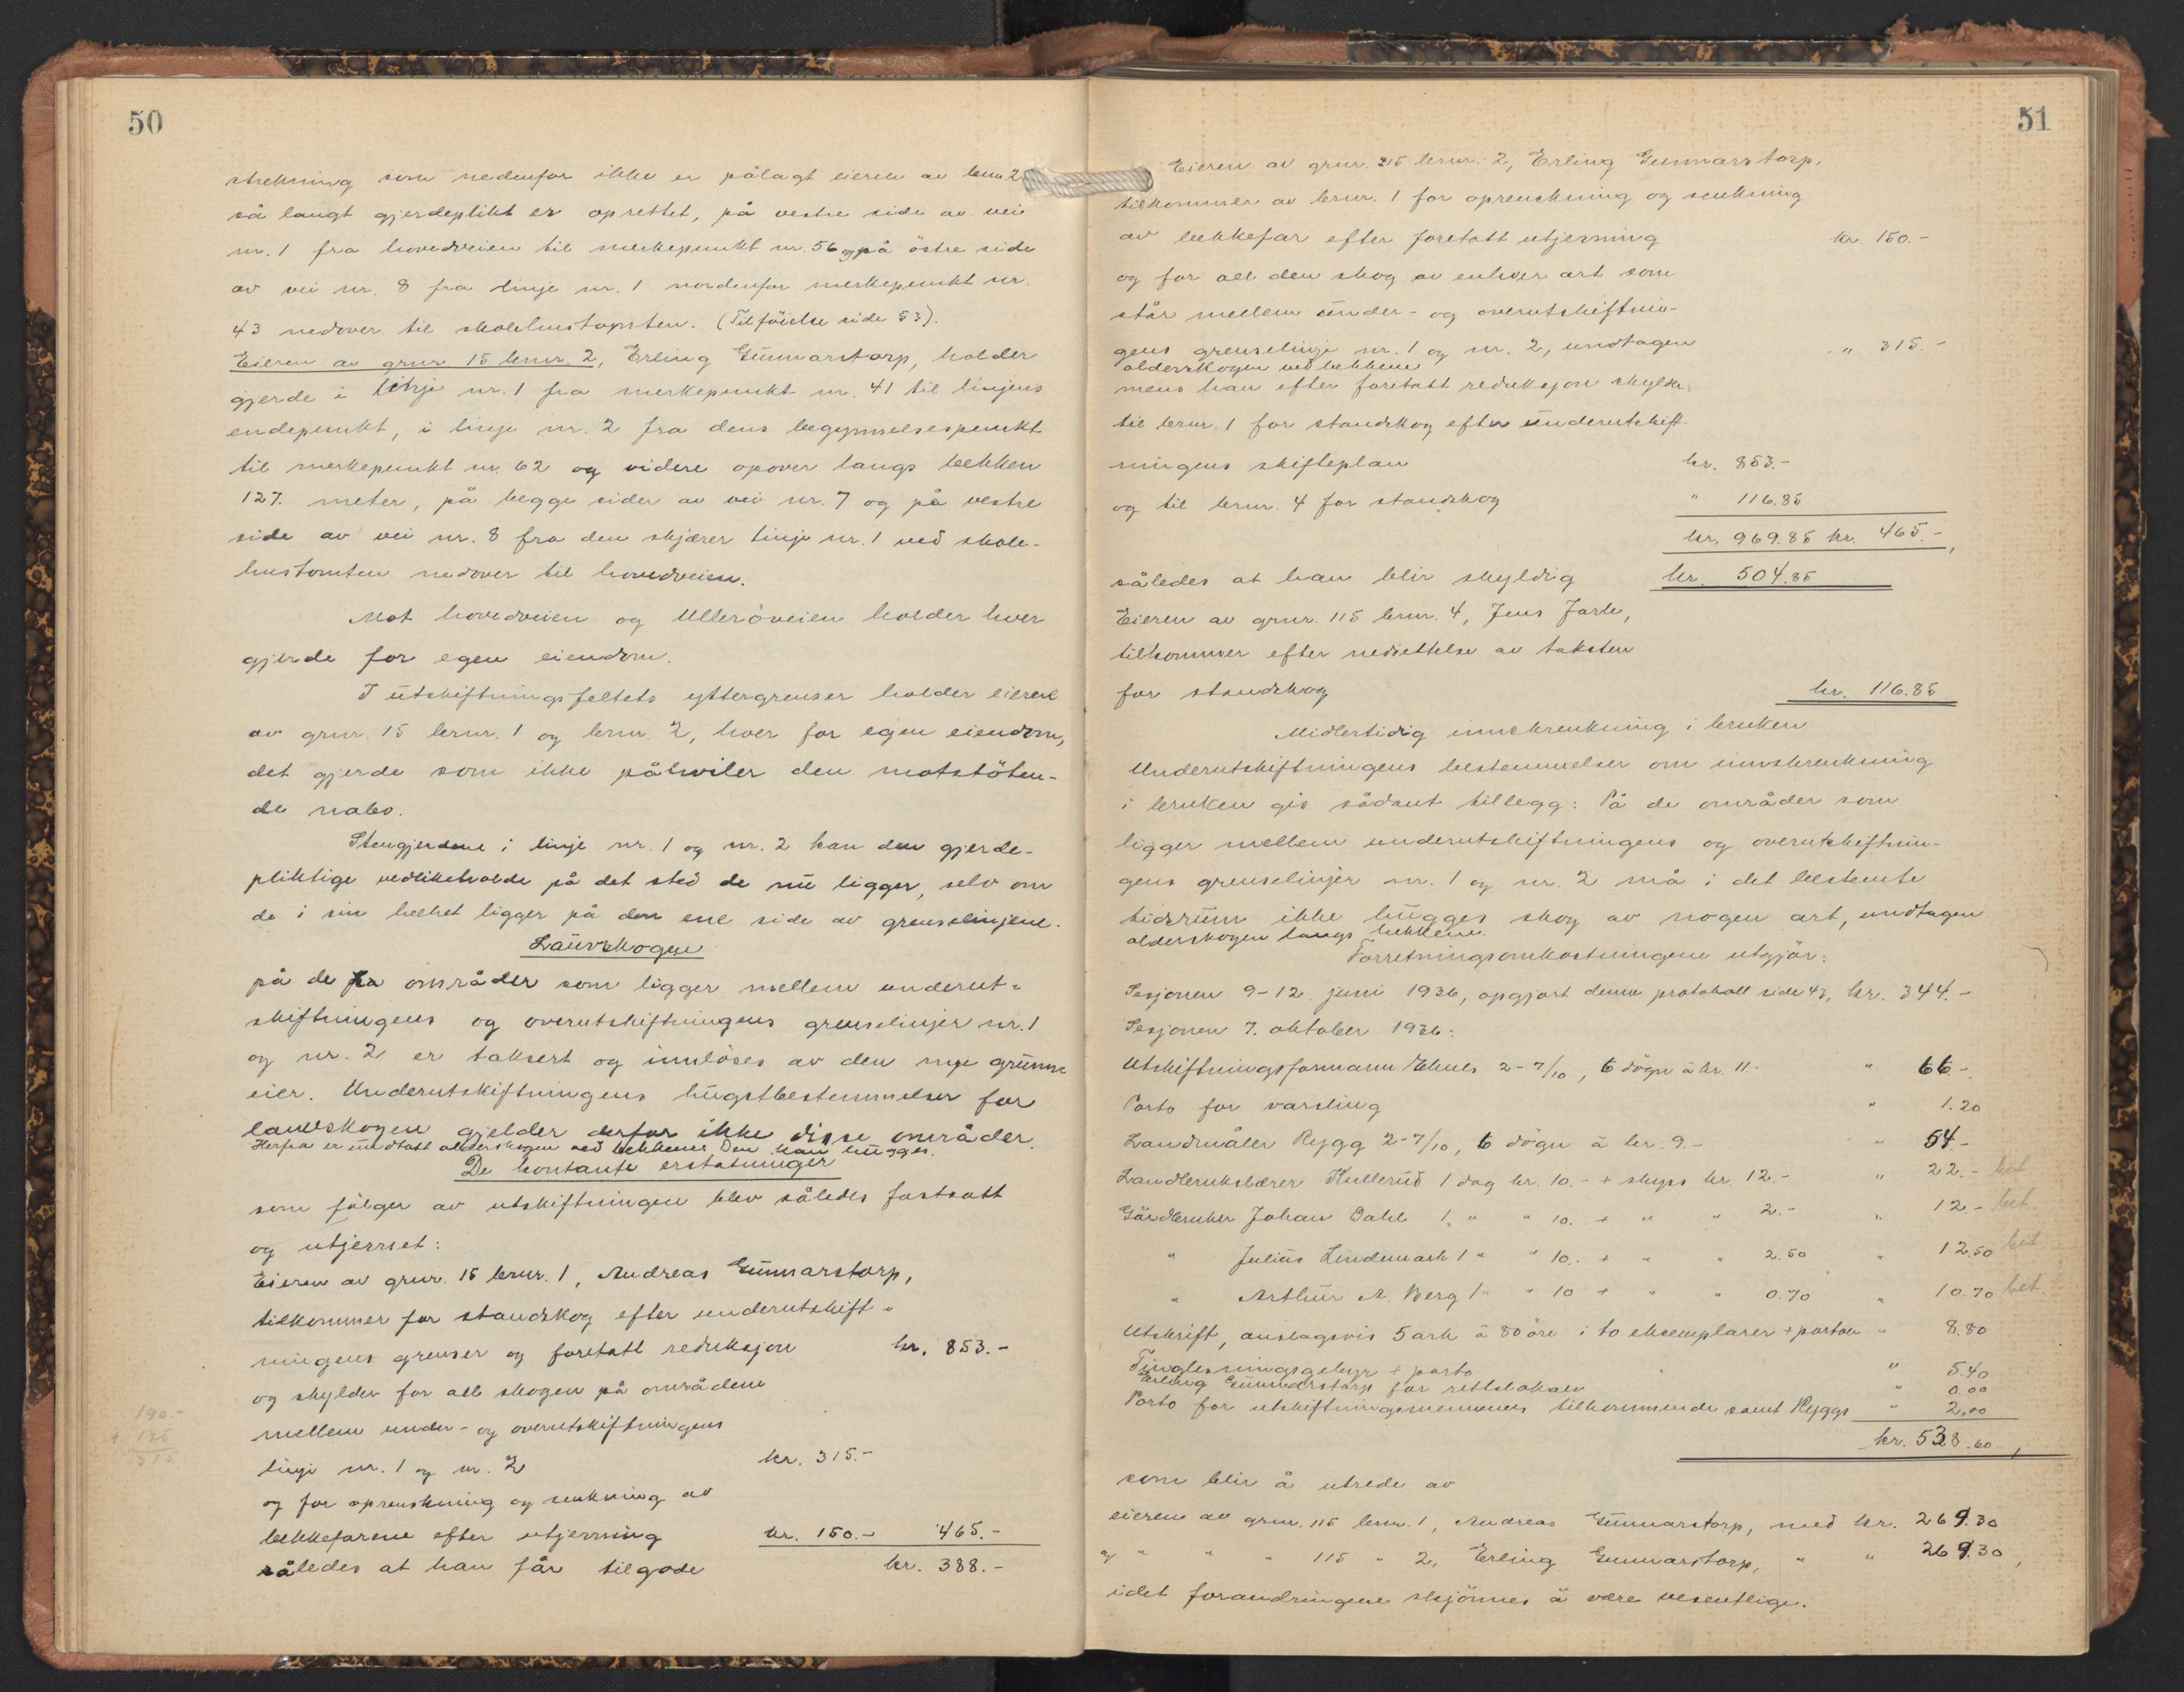 50
strekning som nedenfor ikke er pålagt eieren av brnr. 2
så langt gjerdeplikt er oprettet, på vestre side av vei
nr. 1 fra hovedveien til merkepunkt nr. 56 og på östre side
av vei nr. 8 fra linje nr. 1 nordenfor merkepunkt nr.
43 nedover til skolehustomten. (Tilföielse side 53).
Eieren av grnr 15 brnr. 2, Erling Gunnarstorp, holder
gjerde i linje nr. 1 fra merkepunkt nr. 41 til linjens
endepunkt, i linje nr. 2 fra dens begynnelsespunkt
til merkepunkt nr. 62 og videre opover langs bekken
127. meter, på begge sider av vei nr. 7 og på vestre
side av vei nr. 8 fra den skjærer linje nr. 1 ved skole-
hustomten nedover til hovedveien.
Mot hovedveien og Ulleröveien holder hver
gjerde for egen eiendom.
I utskiftningsfeltets yttergrenser holder eierene
av grnr. 15 brnr. 1 og brnr. 2, hver for egen eiendom,
det gjerde som ikke påhviler den motstöten-
de nabo.
Stengjerdene i linje nr. 1 og nr. 2 kan den gjerde-
pliktige vedlikeholde på det sted de nu ligger, selv om
de i sin helhet ligger på den ene side av grenselinjene.
Lauvskogen
på de områder som ligger mellem underut-
skiftningens og overutskiftningens grenselinjer nr. 1
og nr. 2 er taksert og innlöses av den nye grunn-
eier. Underutskiftningens hugstbestemmelser for
lauvskogen gjelder derfor ikke disse områder.
Herfra er undtatt olderskogen ved bekkene. Den kan hugges.
De kontante erstatninger
som fölger av utskiftningen blev således fastsatt
og utjevnet:
Eieren av grnr. 15 brnr. 1, Andreas Gunnarstorp,
tilkommer for standskog efter underutskift-
ningens grenser og foretatt reduksjon kr. 853.-
og skylder for all skogen på områdene
mellem under- og overutskiftningens
linje nr. 1 og nr. 2 kr. 315.-
og for oprenskning og senkning av
bekkefarene efter utjevning kr. 150.- 465.-
således at han får tilgode kr. 388.-
190.-
+ 125
315
51
Eieren av grnr. 115 brnr. 2, Erling Gunnarstorp,
tilkommer av brnr. 1 for oprenskning og senkning
av bekkefar efter foretatt utjevning kr. 150.-
og for all den skog av enhver art som
står mellem under- og overutskiftnin-
gens grenselinje nr. 1 og nr. 2, undtagen " 315.-
olderskogen ved bekkene
mens han efter foretatt reduksjon skylder
til brnr. 1 for standskog efter underutskift-
ningens skifteplan kr. 853.-
og til brnr. 4 for standskog " 116.85
kr. 969.85 kr. 465.-,
således at han blir skyldig kr. 504.85
Eieren av grnr. 115 brnr. 4, Jens Jarle,
tilkommer efter nedsettelse av taksten
for standskog kr. 116.85
Midlertidig innskrenkning i bruken
Underutskiftningens bestemmelser om innskrenkning
i bruken gis sådant tillegg: På de områder som
ligger mellem underutskiftningens og overutskiftnin-
gens grenselinjer nr. 1 og nr. 2 må i det bestemte
tidsrum ikke hugges skog av nogen art, undtagen
olderskogen langs bekkene.
Forretningsomkostningene utgjör:
Sesjonen 9-12. juni 1936, opgjort denne protokoll side 43, kr. 344.-
Sesjonen 7. oktober 1936:
Utskiftningsformann 2-7/10, 6 dögn à kr. 11.- " 66.-
Porto for varsling " 1.20
Landmåler Rygg 2-7/10, 6 dögn à kr. 9.- " 54.-
Landbrukslærer Kullerud 1 dag kr. 10.- + skyss kr. 12.- " 22.- bet.
Gårdbruker Johan Dahl 1 " " 10. + " " 2.- " 12.- bet.
" Julius Lindemark 1 " " 10. + " " 2.50 " 12.50 bet
" Arthur A. Berg 1 " " 10 + " " 0.70 " 10.70 bet.
Utskrift, anslagsvis 5 ark à 80 öre i to eksemplarer + portoer " 8.80
Tinglesningsgebyr + porto " 5.40
Erling Gunnarstorp for rettslokale " 0.00
Porto for utskiftningsmennenes tilkommende samt Ryggs " 2,00
kr. 538.60,
som blir å utrede av
eieren av grnr. 115 brnr. 1, Andreas Gunnarstorp, med kr. 269.30
og " " " 115 " 2, Erling Gunnarstorp, " " 269.30,
idet forandringene skjönnes å være vesentlige.